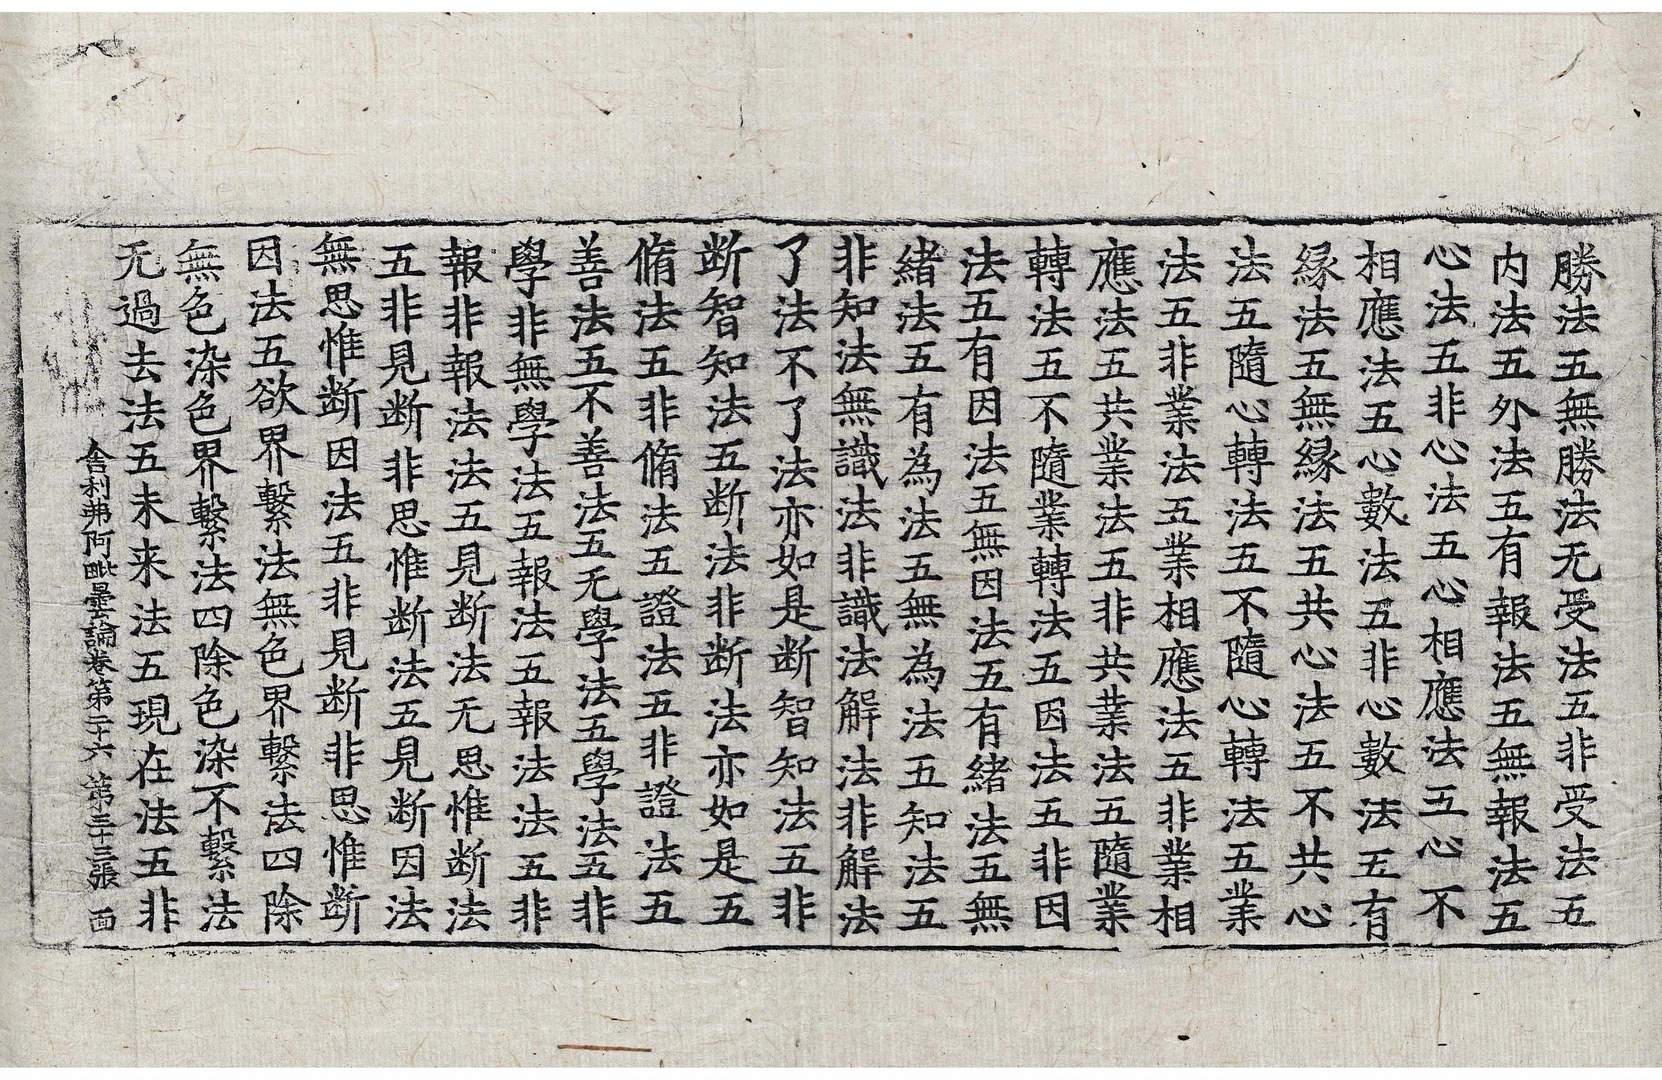 勝法五無勝法无受法五非受法五
内法五外法五有報法五無報法五
心法五非心法五心相應法五心不
相應法五心數法五非心數法五有
縁法五無縁法五共心法五不共心
法五隨心轉法五不隨心轉法五業
法五非業法五業相應法五非業相
應法五共業法五非共業法五隨業
轉法五不隨業轉法五因法五非因
法五有因法五無因法五有緒法五無
緒法五有為法五無為法五知法五
非知法無識法非識法解法非解法
了法不了法亦如是断智知法五非
断智知法五断法非断法亦如是五
脩法五非脩法五證法五非證法五
善法五不善法五无學法五學法五非
學非無學法五報法五報法法五非
報非報法法五見断法无思惟断法
五非見断非思惟断法五見断因法
無思惟断因法五非見断非思惟断
因法五欲界繫法無色界繫法四除
無色染色界繫法四除色染不繫法
无過去法五未来法五現在法五非
舍利弗阿毗曇論卷第二十六 第三十三張 面